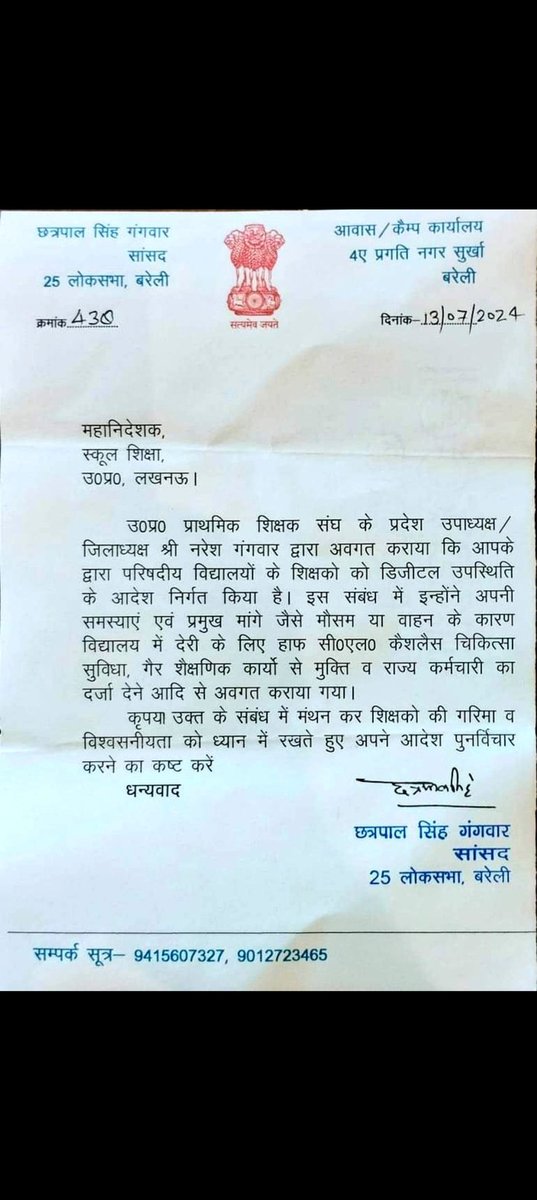 छत्रपाल सिंह गंगवार
सांसद
25 लोकसभा, बरेली
क्रमांक 430
सत्यमेव जयते
आवास/कैम्प कार्यालय
4ए प्रगति नगर सुर्खा
बरेली
दिनांक–13/07/2024
महानिदेशक,
स्कूल शिक्षा,
उ0प्र0, लखनऊ।
उ0प्र0 प्राथमिक शिक्षक संघ के प्रदेश उपाध्यक्ष/
जिलाध्यक्ष श्री नरेश गंगवार द्वारा अवगत कराया कि आपके
द्वारा परिषदीय विद्यालयों के शिक्षको को डिजीटल उपस्थिति
के आदेश निर्गत किया है। इस संबंध में इन्होंने अपनी
समस्याएं एवं प्रमुख मांगे जैसे मौसम या वाहन के कारण
विद्यालय में देरी के लिए हाफ सी0एल0 कैशलैस चिकित्सा
सुविधा, गैर शैक्षणिक कार्यो से मुक्ति व राज्य कर्मचारी का
दर्जा देने आदि से अवगत कराया गया।
कृपया उक्त के संबंध में मंथन कर शिक्षको की गरिमा व
विश्वसनीयता को ध्यान में रखते हुए अपने आदेश पुनर्विचार
करने का कष्ट करें
धन्यवाद
छत्रपाल सिंह गंगवार
सांसद
25 लोकसभा, बरेली
सम्पर्क सूत्र– 9415607327, 9012723465